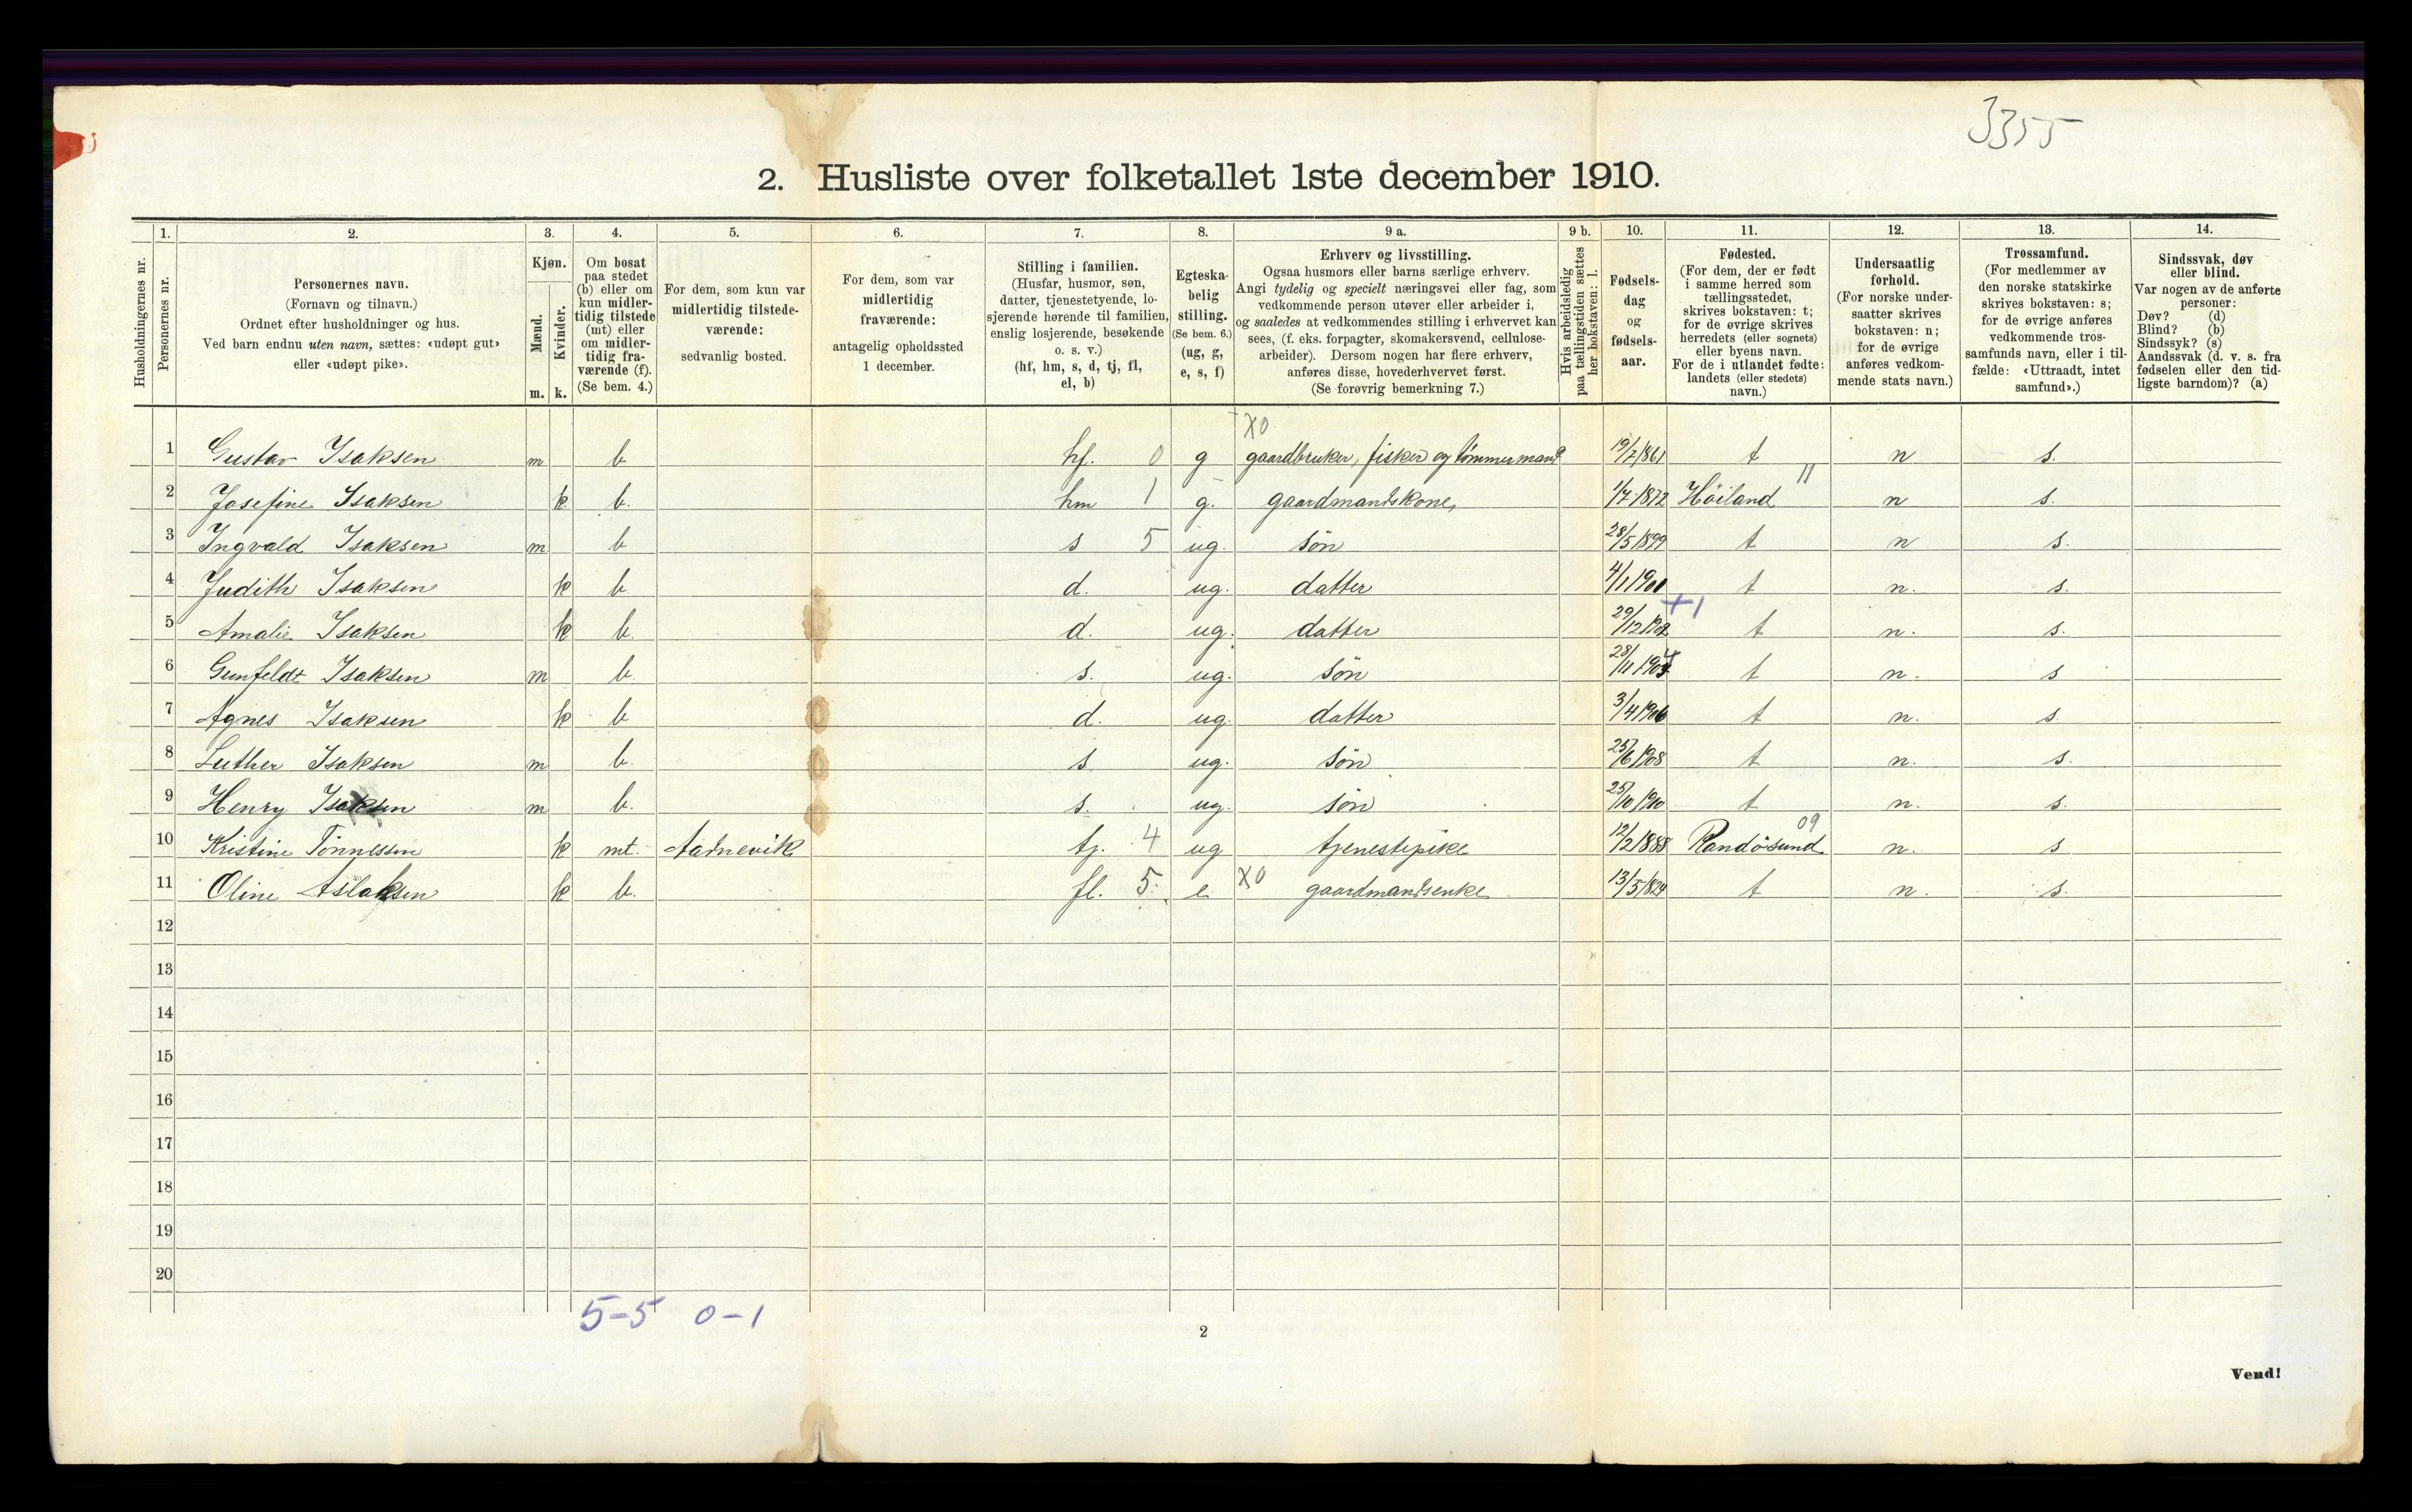 3355
2. Husliste over folketallet 1ste december 1910.
Husholdningernes nr.
1.
Personernes nr.
2.
Personernes navn.
(Fornavn og tilnavn.)
Ordnet efter husholdninger og hus.
Ved barn endnu uten navn, sættes: «udøpt gut»
eller «udøpt pike».
3.
Kjøn.
Mænd. Kvinder.
m. k.
4.
Om bosat
paa stedet
(b) eller om
kun midler-
tidig tilstede
(mt) eller
om midler-
tidig fra-
værende (f).
(Se bem. 4.)
5.
For dem, som kun var
midlertidig tilstede-
værende:
sedvanlig bosted.
6.
For dem, som var
midlertidig
fraværende:
antagelig opholdssted
1 december.
7.
Stilling i familien.
(Husfar, husmor, søn,
datter, tjenestetyende, lo-
sjerende hørende til familien,
enslig losjerende, besøkende
o. s. v.)
(hf, hm, s, d, tj, fl,
el, b)
8.
Egteska-
belig
stilling.
(Se bem. 6.)
(ug, g,
e, s, f)
9 a.
Erhverv og livsstilling.
Ogsaa husmors eller barns særlige erhverv.
Angi tydelig og specielt næringsvei eller fag, som
vedkommende person utøver eller arbeider i,
og saaledes at vedkommendes stilling i erhvervet kan
sees, (f. eks. forpagter, skomakersvend, cellulose-
arbeider). Dersom nogen har flere erhverv,
anføres disse, hovederhvervet først.
(Se forøvrig bemerkning 7.)
9 b.
Hvis arbeidsledig
paa tællingstiden sættes
her bokstaven: l.
10.
Fødsels-
dag
og
fødsels-
aar.
11.
Fødested.
(For dem, der er født
i samme herred som
tællingsstedet,
skrives bokstaven: t;
for de øvrige skrives
herredets (eller sognets)
eller byens navn.
For de i utlandet fødte:
landets (eller stedets)
navn.)
12.
Undersaatlig
forhold.
(For norske under-
saatter skrives
bokstaven: n;
for de øvrige
anføres vedkom-
mende stats navn.)
13.
Trossamfund.
(For medlemmer av
den norske statskirke
skrives bokstaven: s;
for de øvrige anføres
vedkommende tros-
samfunds navn, eller i til-
fælde: «Uttraadt, intet
samfund».)
14.
Sindssvak, døv
eller blind.
Var nogen av de anførte
personer:
Døv? (d)
Blind? (b)
Sindssyk? (s)
Aandssvak (d. v. s. fra
fødselen eller den tid-
ligste barndom)? (a)
X0
1 Gustav Isaksen m b hf. 0 g gaardbruker, fisker og tømmermand 19/7 1861 t n s.
11
2 Josefine Isaksen k. b. hm 1 g. gaardmandskone, 1/7 1872 Höiland n s.
3 Ingvald Isaksen m b s 5 ug. sön 28/5 1899 t n s.
4 Judith Isaksen k b d. ug. datter 4/1 1901 t n. s.
+1
5 Amalie Isaksen k b. d. ug. datter 29/12 1902 t n. s.
6 Gunfeldt Isaksen m b. s. ug. sön 28/11 1904 t n. s
7 Agnes Isaksen k b d. ug. datter 3/4 1906 t n. s.
8 Luther Isaksen m b. s ug. sön 25/6 1908 t n. s.
9 Henry Isaksen m b. s. ug. sön 25/10 1910 t n. s.
09
10 Kristine Tönnessen k mt. Aadnevik tj. 4 ug tjenestepike 12/2 1888 Randösund n. s
11 Oline Aslaksen k b. fl. 5. e. X0 gaardmandsenke 13/5 1824 t n. s.
12
13
14
15
16
17
18
19
20
5-5 0-1
2
Vend!